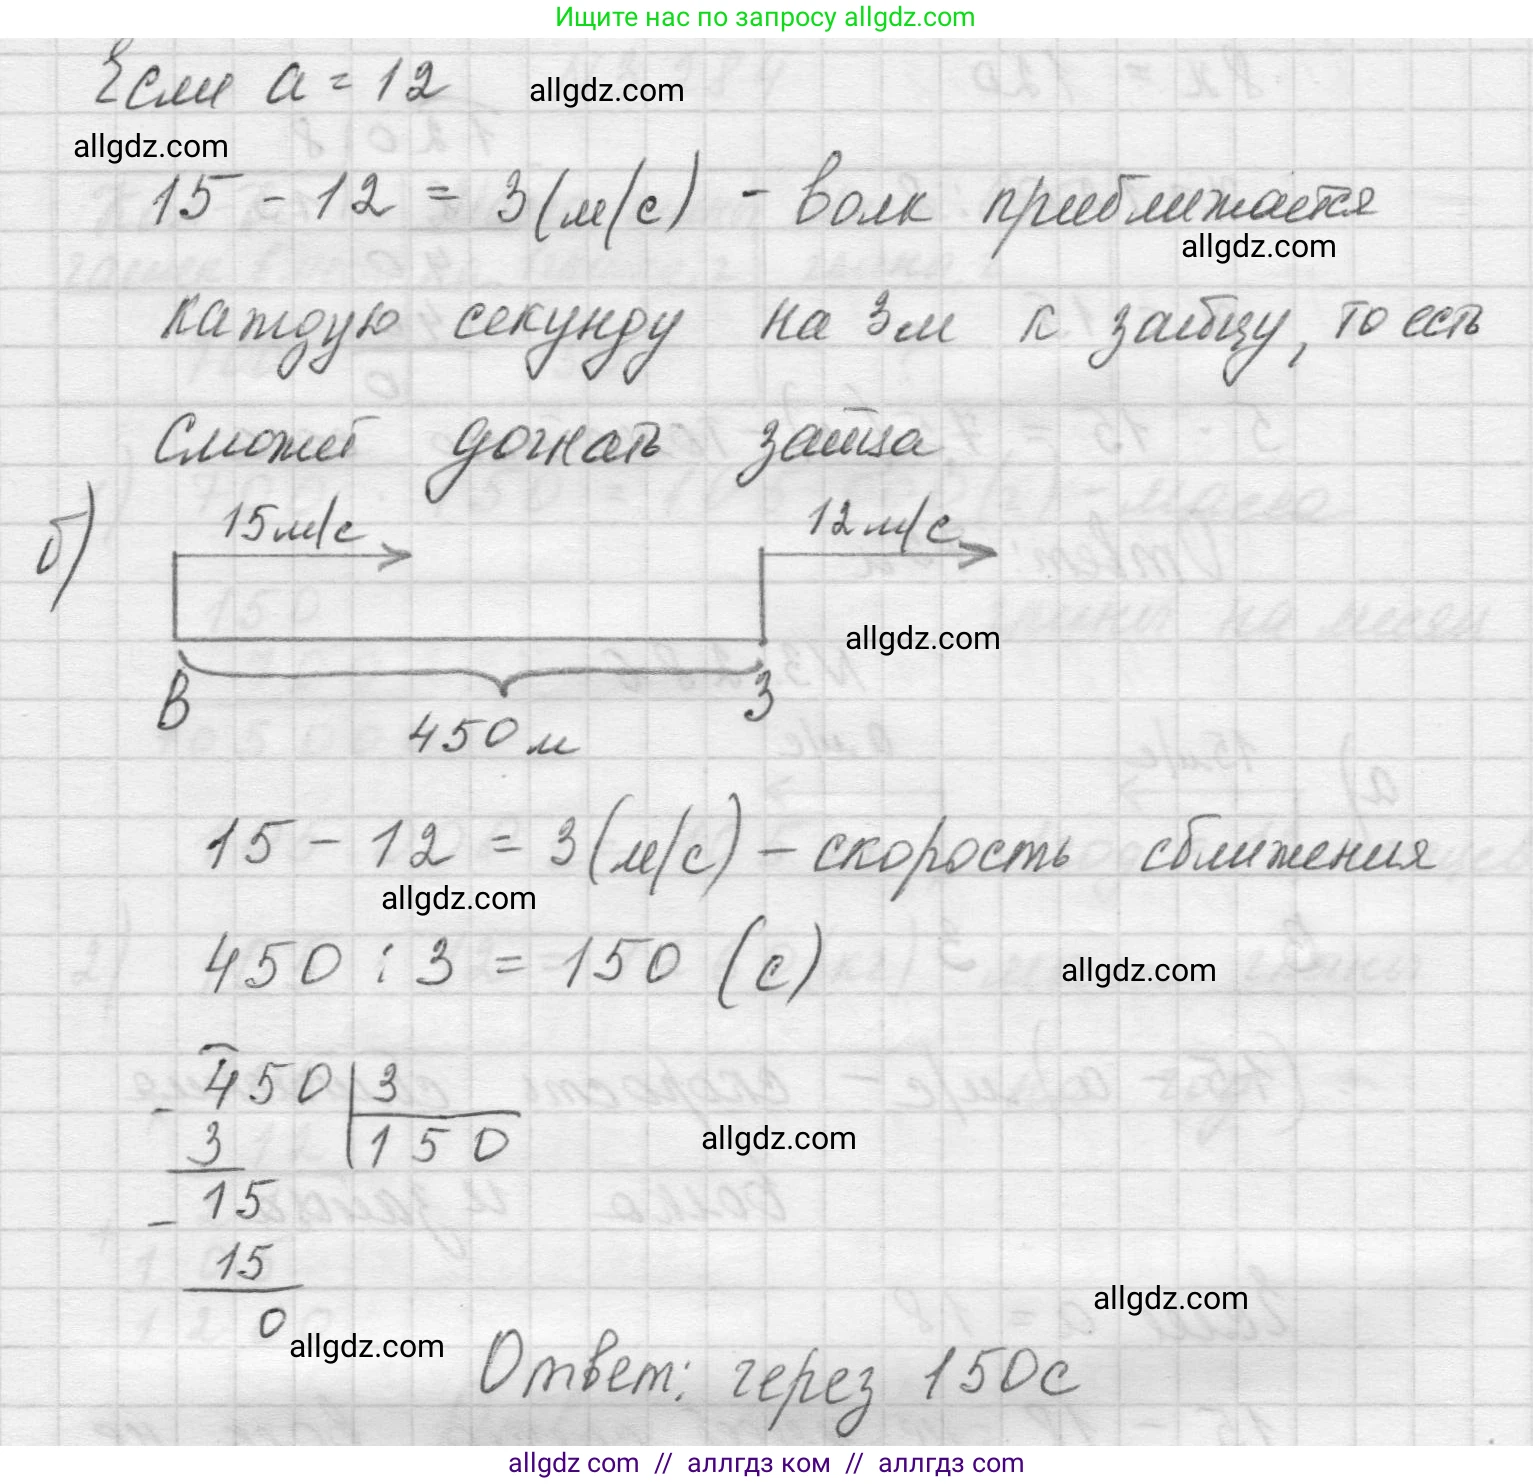 Ищите нас по запросу allgdz.com
Если a = 12
allgdz.com
allgdz.com
15 - 12 = 3 (м/с) - волк приближается
allgdz.com
каждую секунду на 3м к зайцу, то есть
сможет догнать зайца
б) 15м/с 12м/с
allgdz.com
В З
450 м
15 - 12 = 3 (м/с) - скорость сближения
allgdz.com
450 : 3 = 150 (с)
allgdz.com
- 450 3
3 150
allgdz.com
- 15
15
0
allgdz.com
allgdz.com
Ответ: через 150с
allgdz com // аллгдз ком // аллгдз com